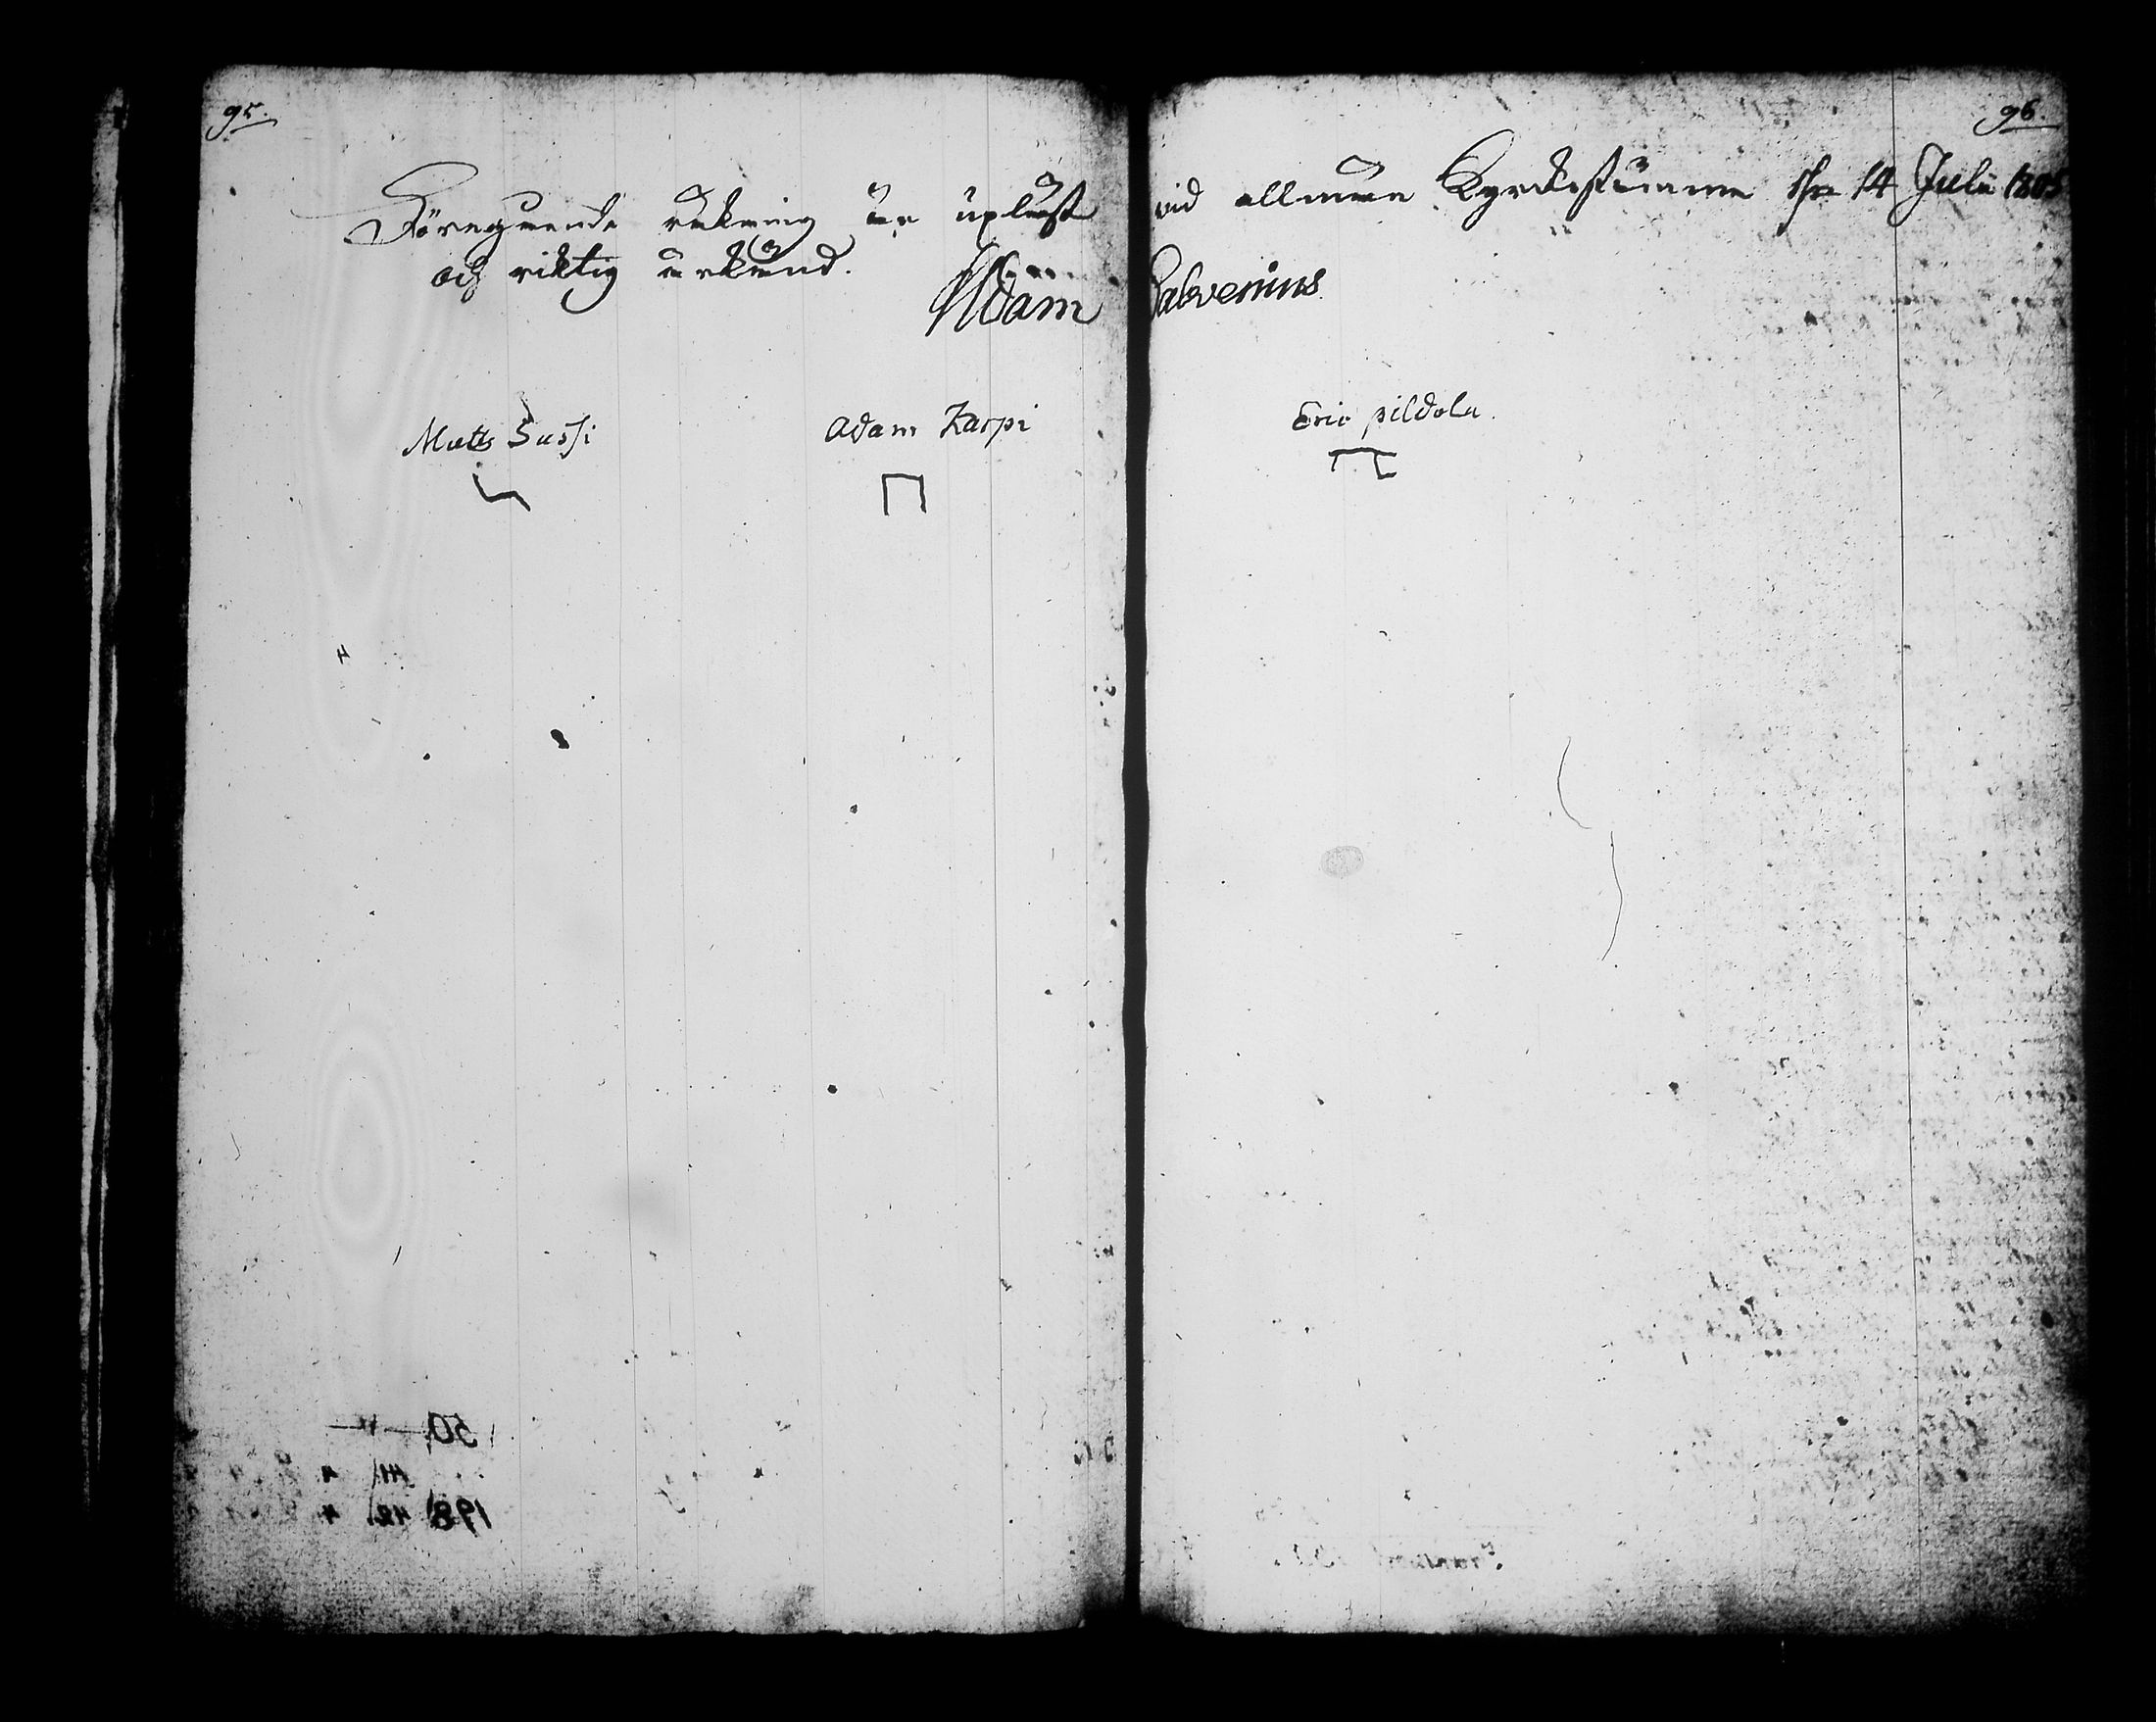 95.
96.
Föregående räkning är upläst vid allmän Kyrckostämma d 14 Julii 1805
och riktig ärkänd.
Adam Salvenius
Matts Sussi
Adam Karpi
Eric pildola.